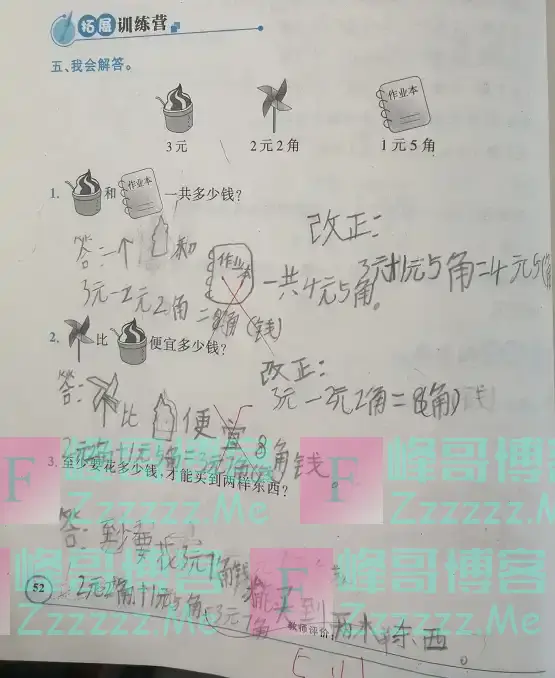 拓展训练营
五、我会解答。
作业本
3元 2元2角 1元5角
1. 和 作业本 一共多少钱?
改正:
3元+1元5角=4元5(角)
答:一个 和 作业本 一共4元5角。
3元-2元2角=8角(钱)
2. 比 便宜多少钱?
改正:
3元-2元2角=8(角)
答: 比 便宜8角钱。
2元2角+1元5角=3元7角
3. 至少要花多少钱,才能买到两样东西?
答:至少要花3元7角钱才能买到两样东西。
2元2角+1元5角=3元7角
52
教师评价:
F 峰哥博客
Zzzzzz.Me
F 峰哥博客
Zzzzzz.Me
F 峰哥博客
Zzzzzz.Me
F 峰哥博客
Zzzzzz.Me